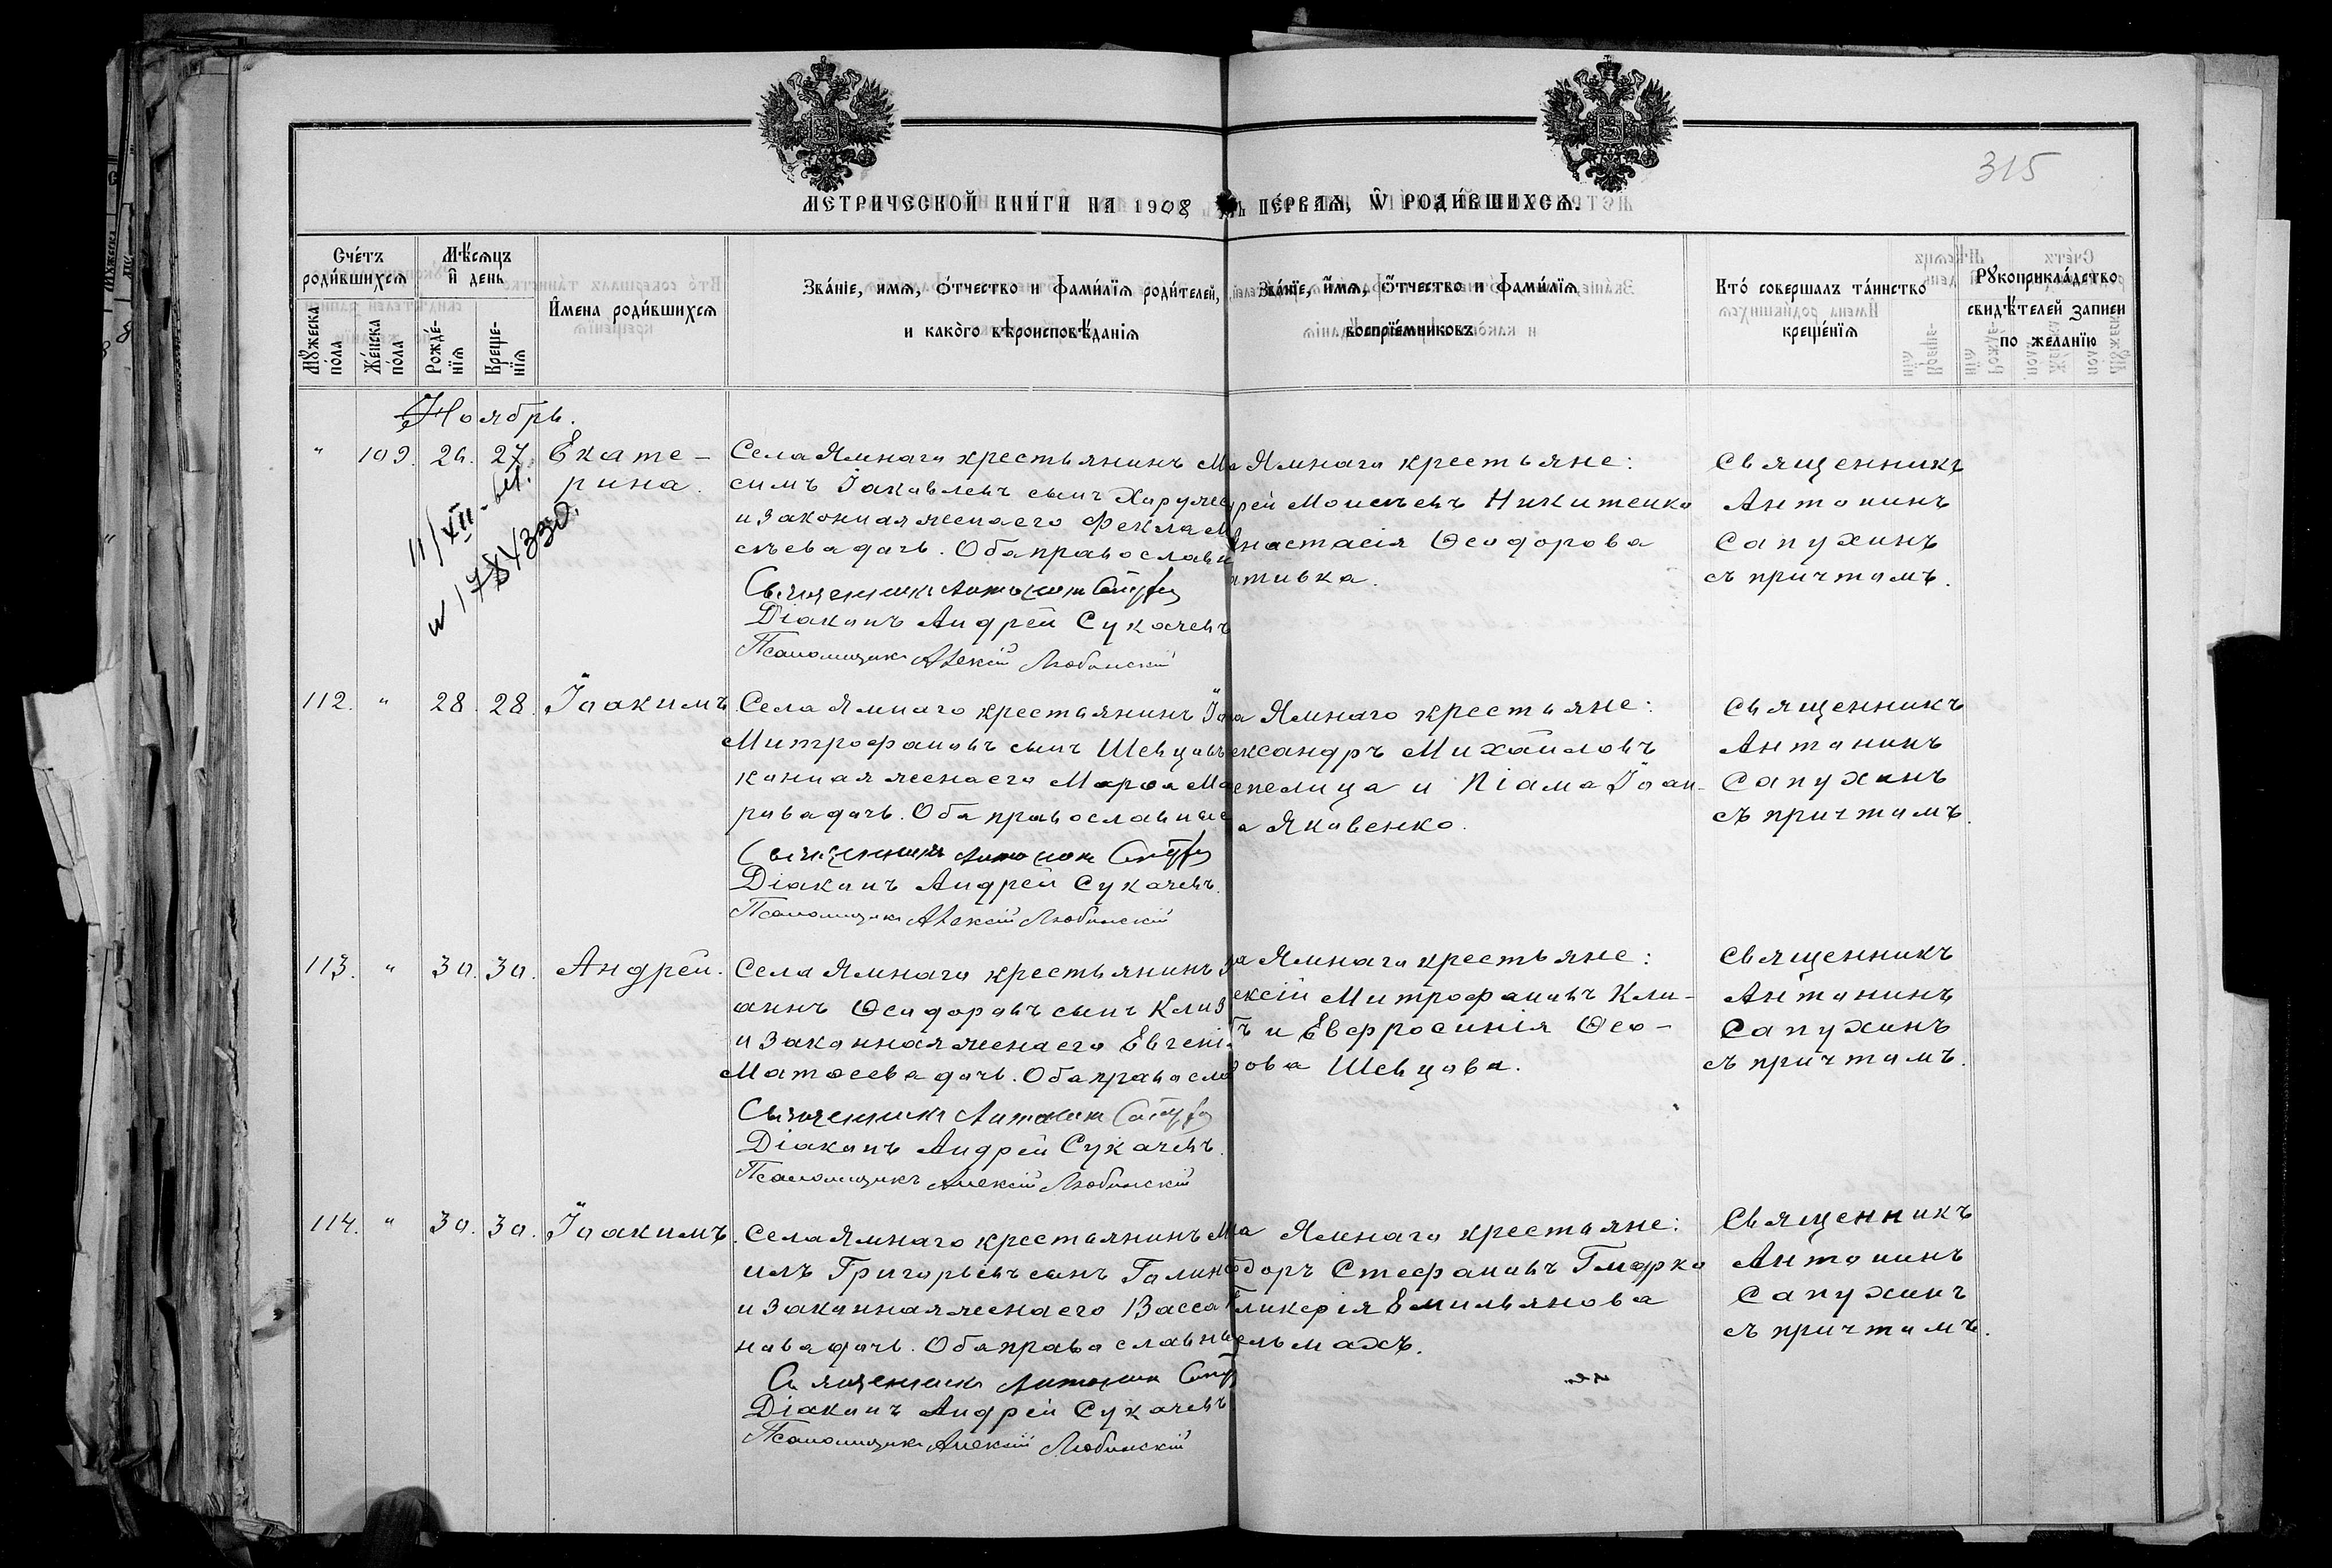 315
МЕТРИЧЕСКОЙ КНИ́ГИ НА 1908
ПЕ́РВАЯ, Ѿ РОДИ́ВШИХСЯ.
Сче́тъ роди́вшихся
Мѣ́сяцъ и҆ день
И҆мена роди́вшихся
Зва́нїе, имя, о́тчество и фами́лїя роди́телей, и како́го вѣроисповѣ́данїя
Зва́нїе, и҆мя, о́тчество и фами́лїя воспрїе́мниковъ
Кто́ соверша́лъ та́инство креще́нїя
Рꙋкоприкла́дство свидѣ́телей записи по жела́нїю
Мꙋ́жеска по́ла
Же́нска по́ла
Рожде́нїя
Креще́нїя
Ноябрь.
" 109. 26. 27. Екате-
рина.
Села Ямнаго крестьянинъ Ма
симъ Іаковлевъ сынъ
и законная жена его Фекла М
сѣева дочь. Оба православн
Священникъ Антонинъ
Діаконъ Андрей Сукачевъ
Псаломщикъ Алексій Любинскій
Ямнаго крестьяне:
рей Моисеевъ Никитенко
Анастасія Ѳеодорова
тивка.
Священникъ
Антонинъ
Сапухинъ
съ причтомъ.
11/XII
112. " 28. 28. Іоакимъ
Села Ямнаго крестьянинъ Іо
Митрофановъ сынъ Шевцовъ
конная жена его Марѳа Ма
рова дочь. Оба православные
Священникъ Антонинъ
Діаконъ Андрей Сукачевъ.
Псаломщикъ Алексій Любинскій
а Ямнаго крестьяне:
ександръ Михайловъ
епелица и Піама Іоан-
а Яковенко.
Священникъ
Антонинъ
Сапухинъ
съ причтомъ.
113. " 30. 30. Андрей.
Села Ямнаго крестьянинъ І
аннъ Ѳеодоровъ сынъ Клив
и законная жена его Евгенія
Матѳеева дочь. Оба правосла
Священникъ Антонинъ
Діаконъ Андрей Сукачевъ.
Псаломщикъ Алексій Любинскій
а Ямнаго крестьяне:
ексій Митрофановъ Кли-
ъ и Евфросинія Ѳео-
рова Шевцова.
Священникъ
Антонинъ
Сапухинъ
съ причтомъ.
114. " 30. 30. Іоакимъ.
Села Ямнаго крестьянинъ М
илъ Григорьевъ сынъ Галинс
и законная жена его Васса
нова дочь. Оба православны
Священникъ Антонинъ
Діаконъ Андрей Сукачевъ
Псаломщикъ Алексій Любинскій
а Ямнаго крестьяне:
доръ Стефановъ
Гликерія Емильянова
ельмахъ.
Священникъ
Антонинъ
Сапухинъ
съ причтомъ.